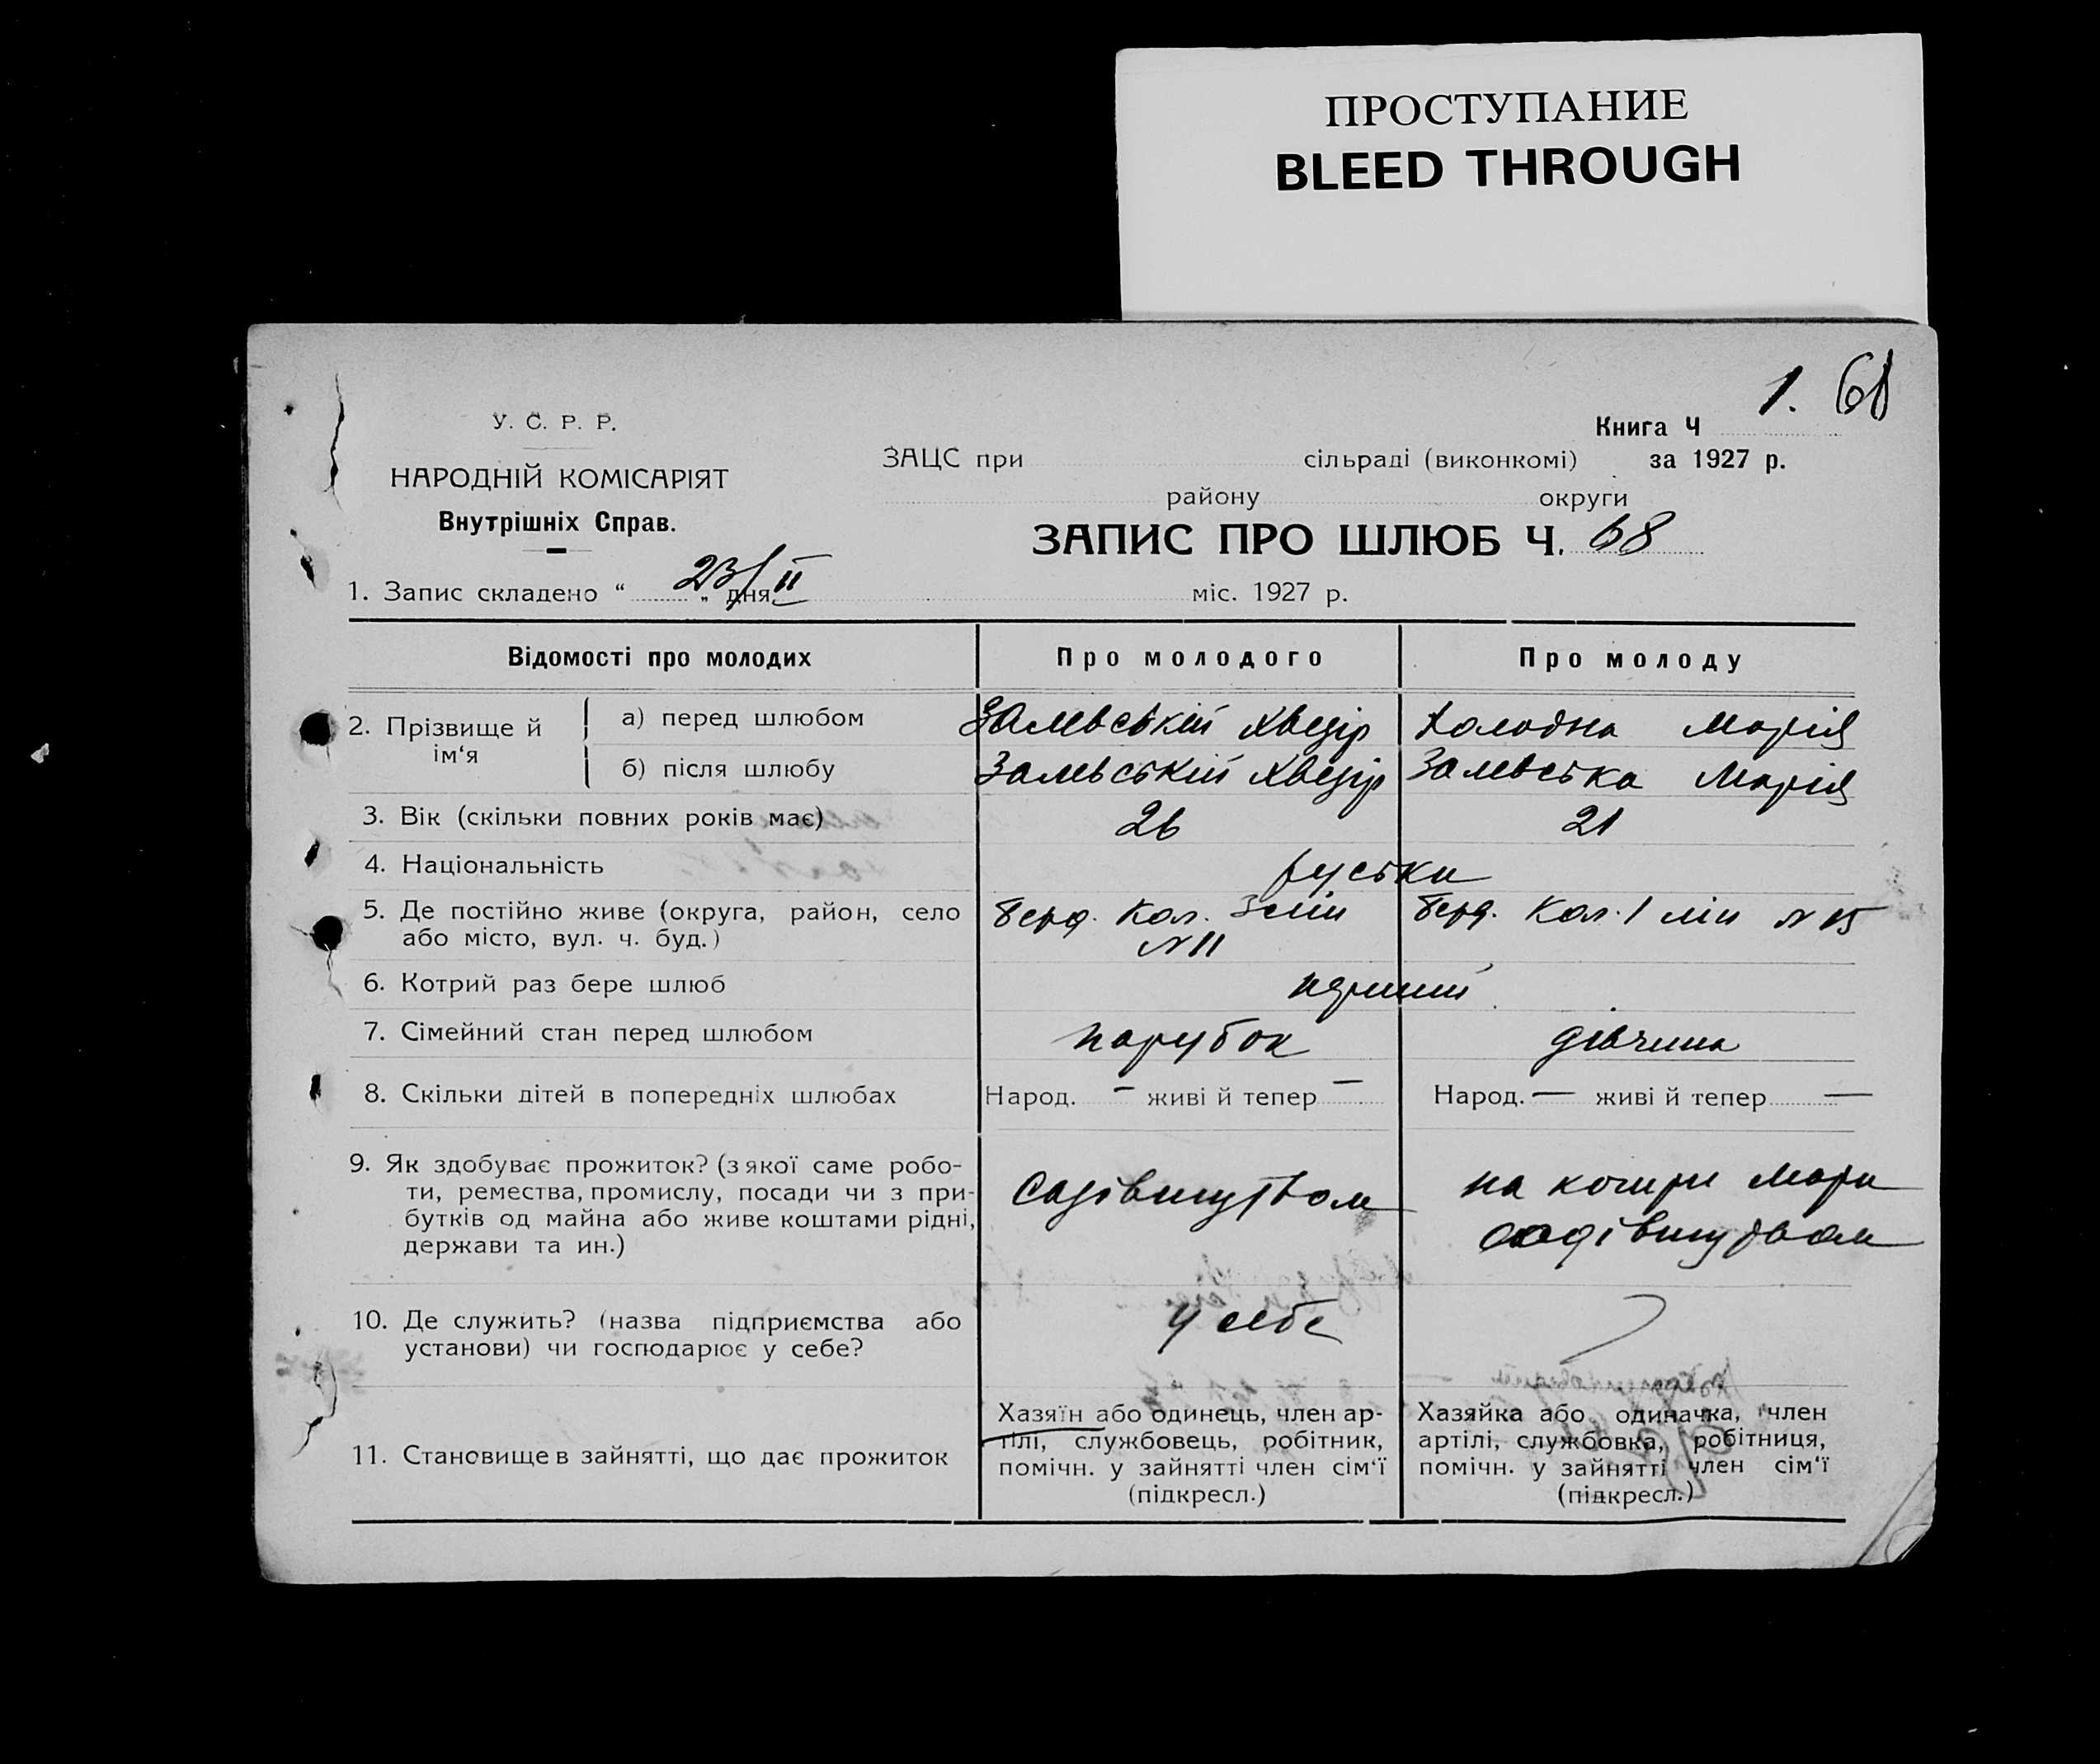 ПРОСТУПАНИЕ
BLEED THROUGH
1. 68
У. С. Р. Р.
Книга Ч
НАРОДНІЙ КОМІСАРІЯТ
ЗАЦС при сільраді (виконкомі) за 1927 р.
району округи
Внутрішніх Справ.
ЗАПИС ПРО ШЛЮБ Ч. 68
1. Запис складено “ 23/II „ дня міс. 1927 р.
Відомості про молодих
Про молодого
Про молоду
2. Прізвище й ім‘я
а) перед шлюбом
Залевській Хведір
Холодна Марія
б) після шлюбу
Залевській Хведір
Залевська Марія
3. Вік (скільки повних років має)
26
21
4. Національність
руськи
5. Де постійно живе (округа, район, село
або місто, вул. ч. буд.)
Берд. Кол. 3 лін
N 11
Берд. Кол. 1 лін N 15
6. Котрий раз бере шлюб
перший
7. Сімейний стан перед шлюбом
парубок
дівчина
8. Скільки дітей в попередніх шлюбах
Народ. — живі й тепер —
Народ. — живі й тепер —
9. Як здобуває прожиток? (з якої саме робо-
ти, ремества, промислу, посади чи з при-
бутків од майна або живе коштами рідні,
держави та ин.)
Садівництвом
на
садівництвом
10. Де служить? (назва підприємства або
установи) чи господарює у себе?
у себе
11. Становище в зайнятті, що дає прожиток
Хазяїн або одинець, член ар-
тілі, службовець, робітник,
помічн. у зайнятті член сім‘ї
(підкресл.)
Хазяйка або одиначка, член
артілі, службовка, робітниця,
помічн. у зайнятті член сім‘ї
(підкресл.)